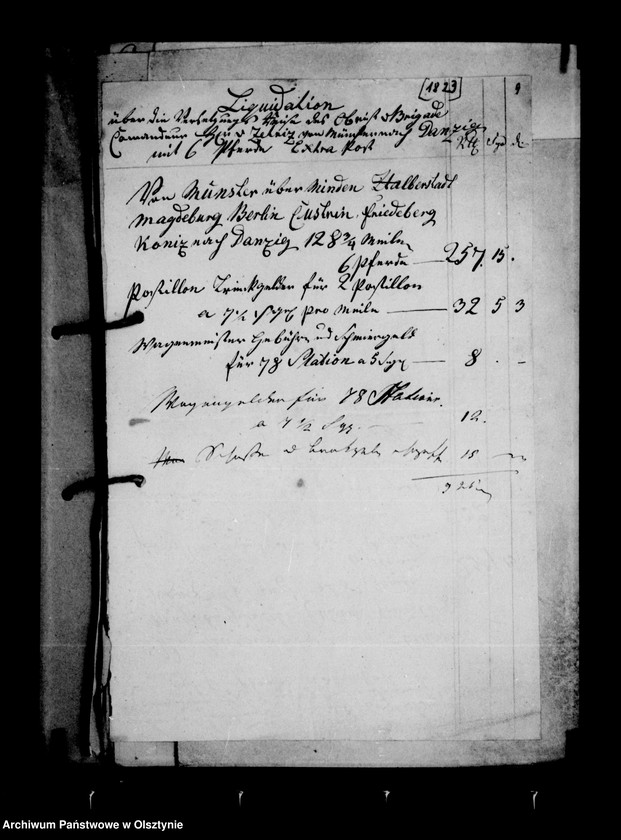 [1823] 9
Liquidation
über die Versetzungs Reise des Obrist & Brigade
Comandeur von Münster nach Danzig
mit 6 Pferde Extra Post
Von Münster über Minden Halberstadt
Magdeburg Berlin Custrin, Friedeberg
Koniz nach Danzig 128 3/4 Meilen
6 Pferde — 257. 15.
Postillon Trinkgelder für 2 Postillon
a 7½ Sgr pro Meile — 32 5 3
Wagenmeister Gebühren und Schmiergeld
für 78 Station a 5 Sgr — 8 . –
Wagengelder für 78 Station.
a 7 1/2 Sgr. — 12.
15